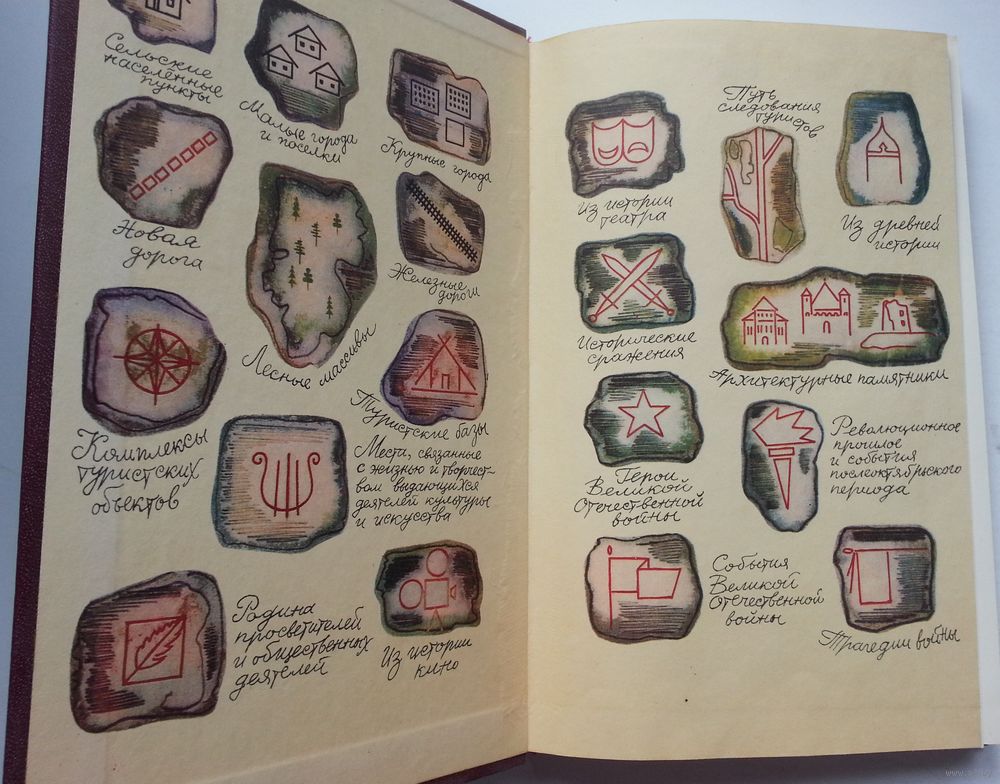 Сельские
населённые
пункты
Малые города
и поселки
Крупные города
Новая
дорога
Лесные массивы
Железные
дороги
Комплексы
туристских
объектов
Туристские базы
Места, связанные
с жизнью и творчест-
вом выдающихся
деятелей культуры
и искусства
Родина
просветителей
и общественных
деятелей
Из истории
кино
Из истории
театра
Путь
следования
туристов
Из древней
истории
Исторические
сражения
Архитектурные памятники
Герои
Великой
Отечественной
войны
Революционное
прошлое
и события
послеоктябрьского
периода
События
Великой
Отечественной
войны
Трагедии войны